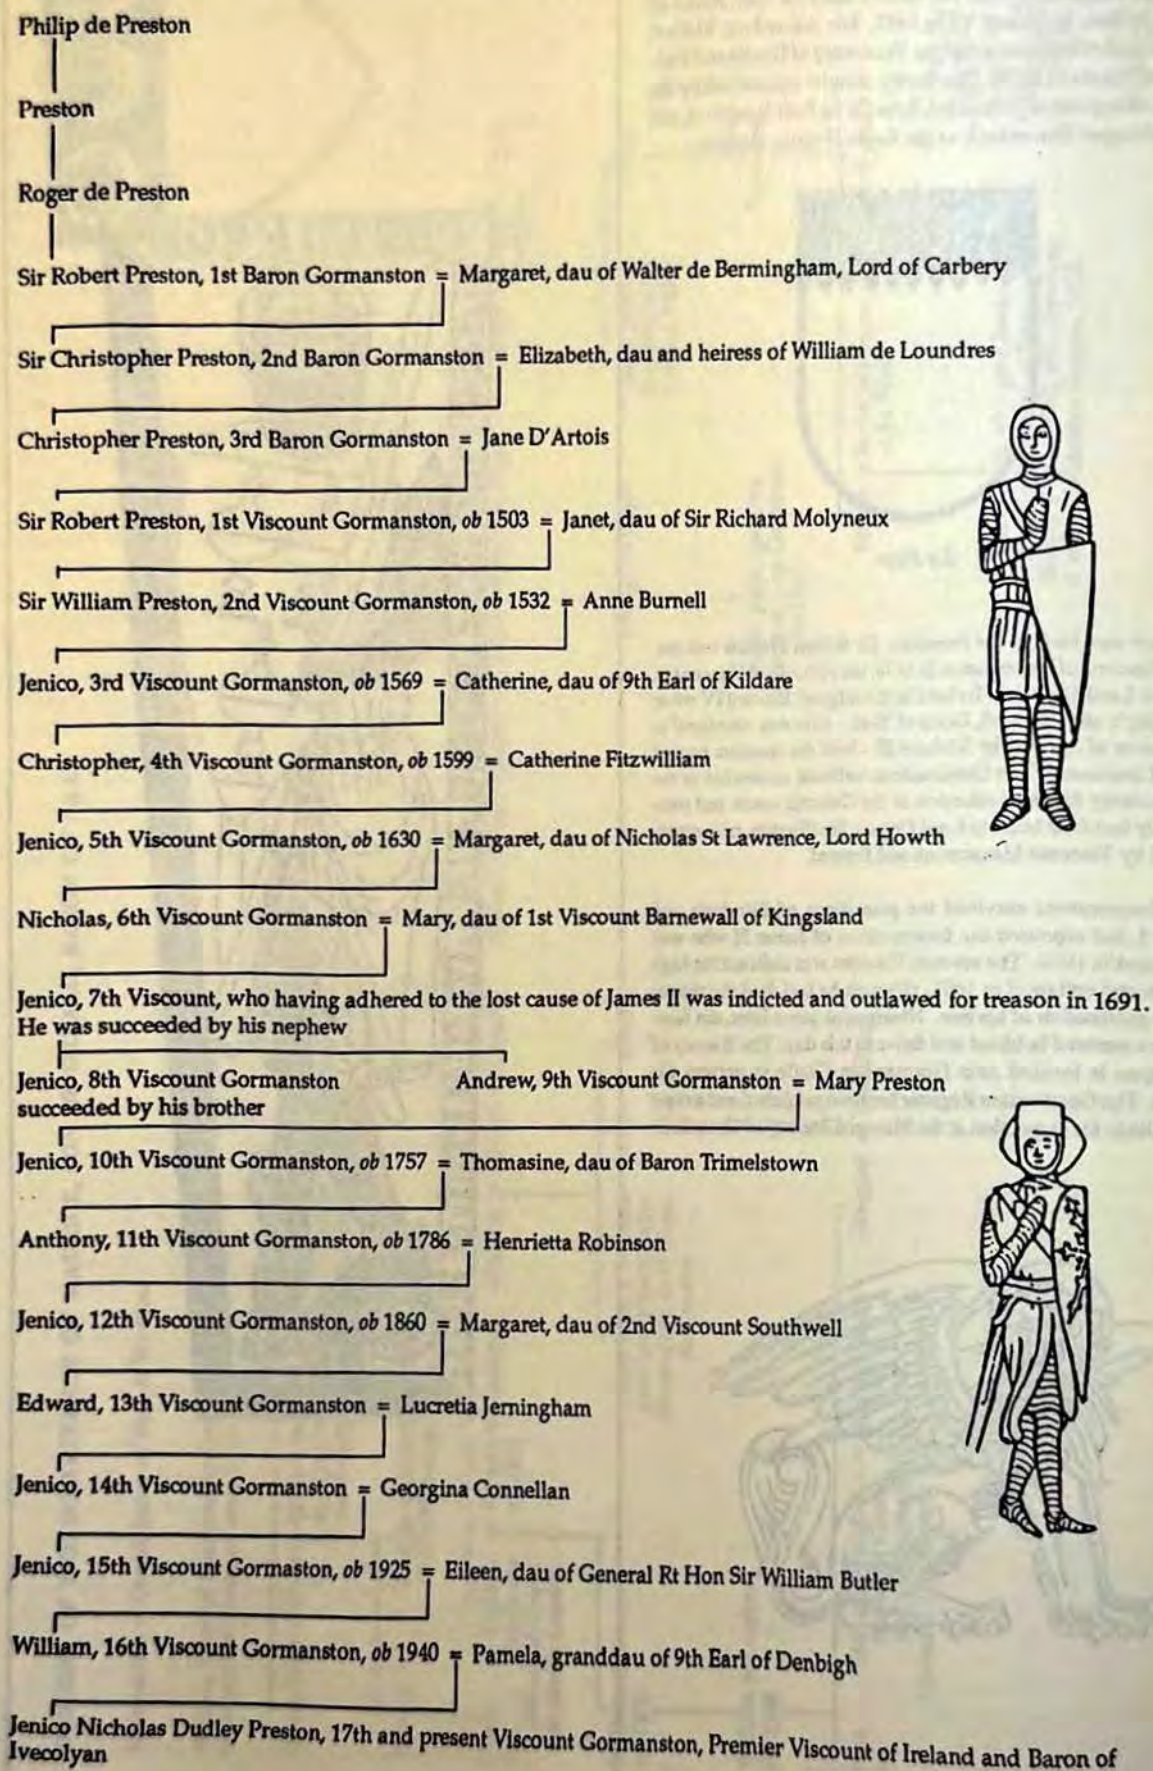 Philip de Preston
Preston
Roger de Preston
Sir Robert Preston, 1st Baron Gormanston = Margaret, dau of Walter de Bermingham, Lord of Carbery
Sir Christopher Preston, 2nd Baron Gormanston = Elizabeth, dau and heiress of William de Loundres
Christopher Preston, 3rd Baron Gormanston = Jane D'Artois
Sir Robert Preston, 1st Viscount Gormanston, ob 1503 = Janet, dau of Sir Richard Molyneux
Sir William Preston, 2nd Viscount Gormanston, ob 1532 = Anne Burnell
Jenico, 3rd Viscount Gormanston, ob 1569 = Catherine, dau of 9th Earl of Kildare
Christopher, 4th Viscount Gormanston, ob 1599 = Catherine Fitzwilliam
Jenico, 5th Viscount Gormanston, ob 1630 = Margaret, dau of Nicholas St Lawrence, Lord Howth
Nicholas, 6th Viscount Gormanston = Mary, dau of 1st Viscount Barnewall of Kingsland
Jenico, 7th Viscount, who having adhered to the lost cause of James II was indicted and outlawed for treason in 1691.
He was succeeded by his nephew
Jenico, 8th Viscount Gormanston Andrew, 9th Viscount Gormanston = Mary Preston
succeeded by his brother
Jenico, 10th Viscount Gormanston, ob 1757 = Thomasine, dau of Baron Trimelstown
Anthony, 11th Viscount Gormanston, ob 1786 = Henrietta Robinson
Jenico, 12th Viscount Gormanston, ob 1860 = Margaret, dau of 2nd Viscount Southwell
Edward, 13th Viscount Gormanston = Lucretia Jerningham
Jenico, 14th Viscount Gormanston = Georgina Connellan
Jenico, 15th Viscount Gormaston, ob 1925 = Eileen, dau of General Rt Hon Sir William Butler
William, 16th Viscount Gormanston, ob 1940 = Pamela, granddau of 9th Earl of Denbigh
Jenico Nicholas Dudley Preston, 17th and present Viscount Gormanston, Premier Viscount of Ireland and Baron of
Ivecolyan